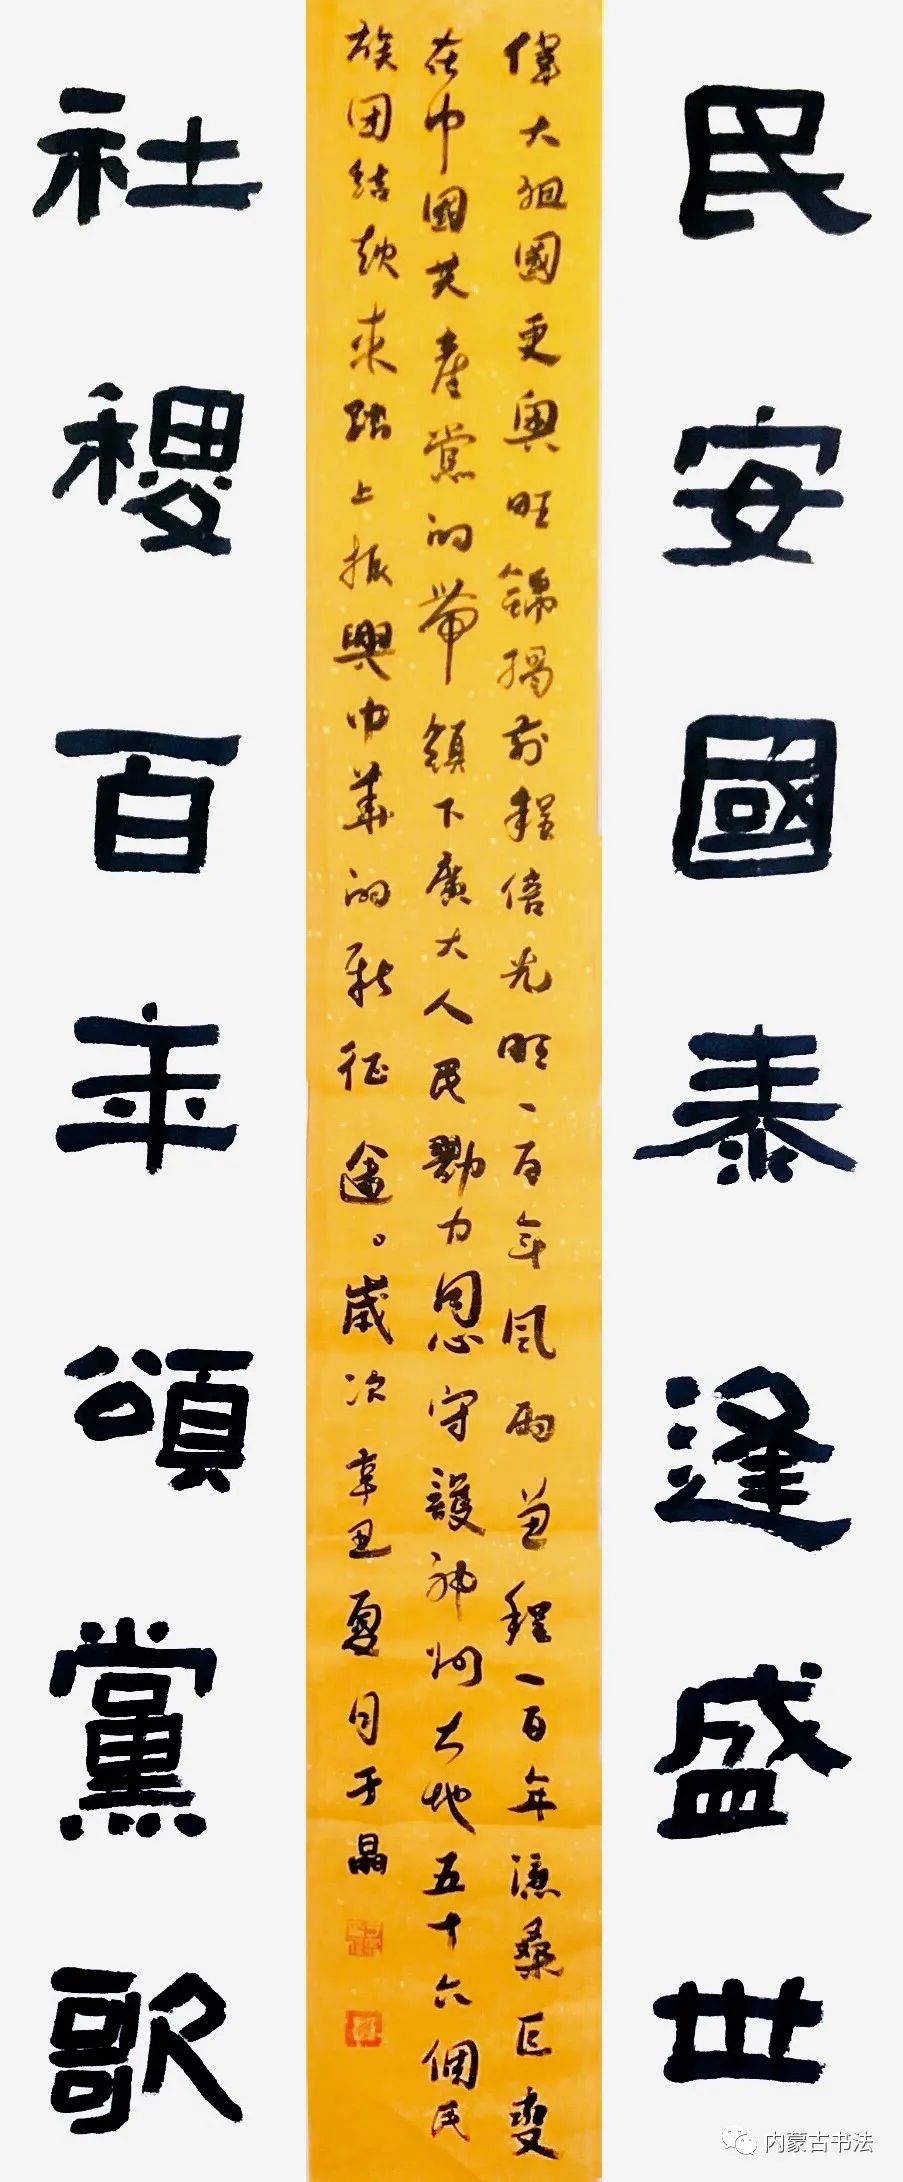 民安國泰逢盛世
偉大祖國更興旺錦揚前程倍光旺一百年風雨兼程一百年滄桑巨變
在中國共產黨的帶領下廣大人民勠力同心守護神州大地五十六個民
族团結起來踏上振興中華的新征途。歲次辛丑夏月于晶
社稷百年頌黨歌
内蒙古书法